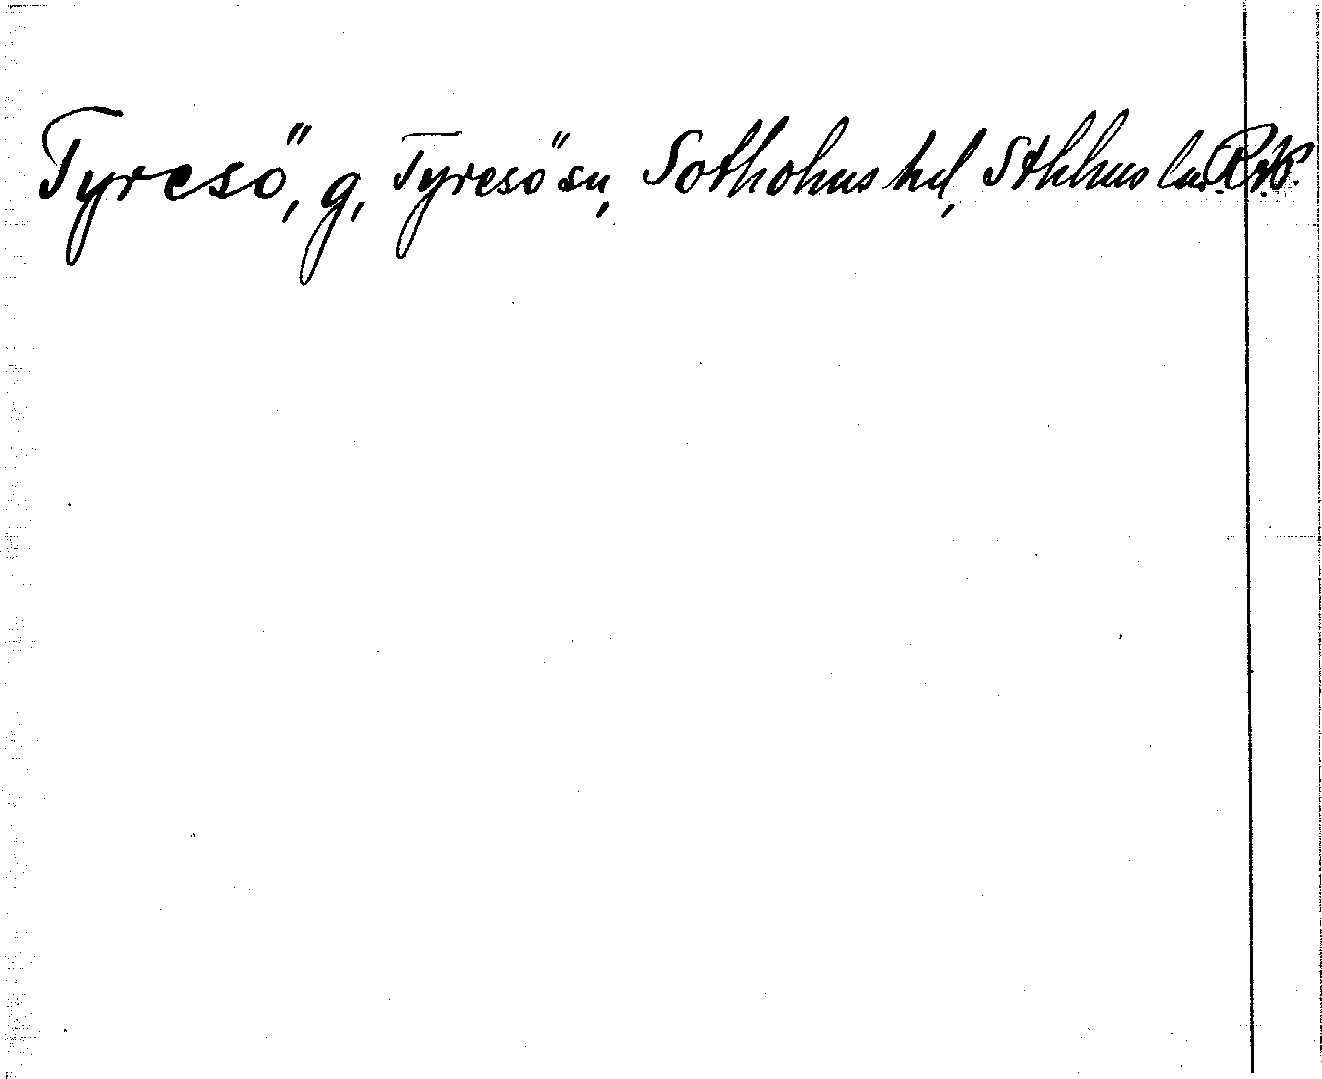 Tyresö, g, Tyresö sn, Sotholms hd, Sthlms län. R.A.